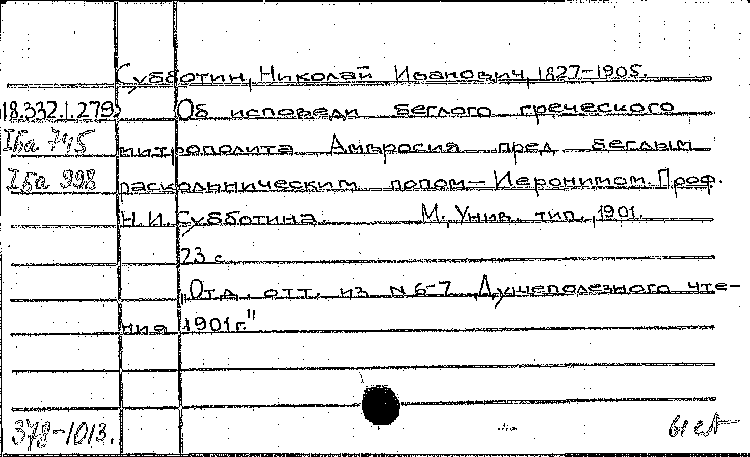 Субботин, Николай Иванович, 1827-1905.
18.332.1.279 Об исповеди беглого греческого
Iба 745 митрополита Амвросия пред беглым
Iба 998 раскольническим попом - Иеронимом. Проф.
Н.И. Субботина. М., Унив. тип., 1901.
23 с.
"Отд. отт. из N 6-7 Душеполезного чте-
ния 1901 г."
378-1013.